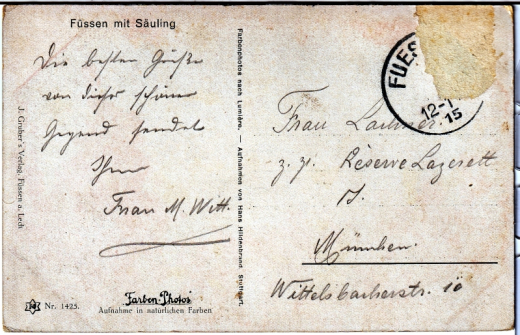 Füssen mit Säuling
Die besten Grüße
von dieser schönen
Gegend sendet
Ihnen
Frau M. Witt.
J. Gruber's Verlag, Füssen a. Lech
Nr. 1425.
Farben-Photos
Aufnahme in natürlichen Farben
Farbenphotos nach Lumière. — Aufnahmen von Hans Hildenbrand, Stuttgart.
FUES
12-1
15
Frau
z. Zt. Reserve Lazarett
I.
München.
Wittelsbacherstr. 10